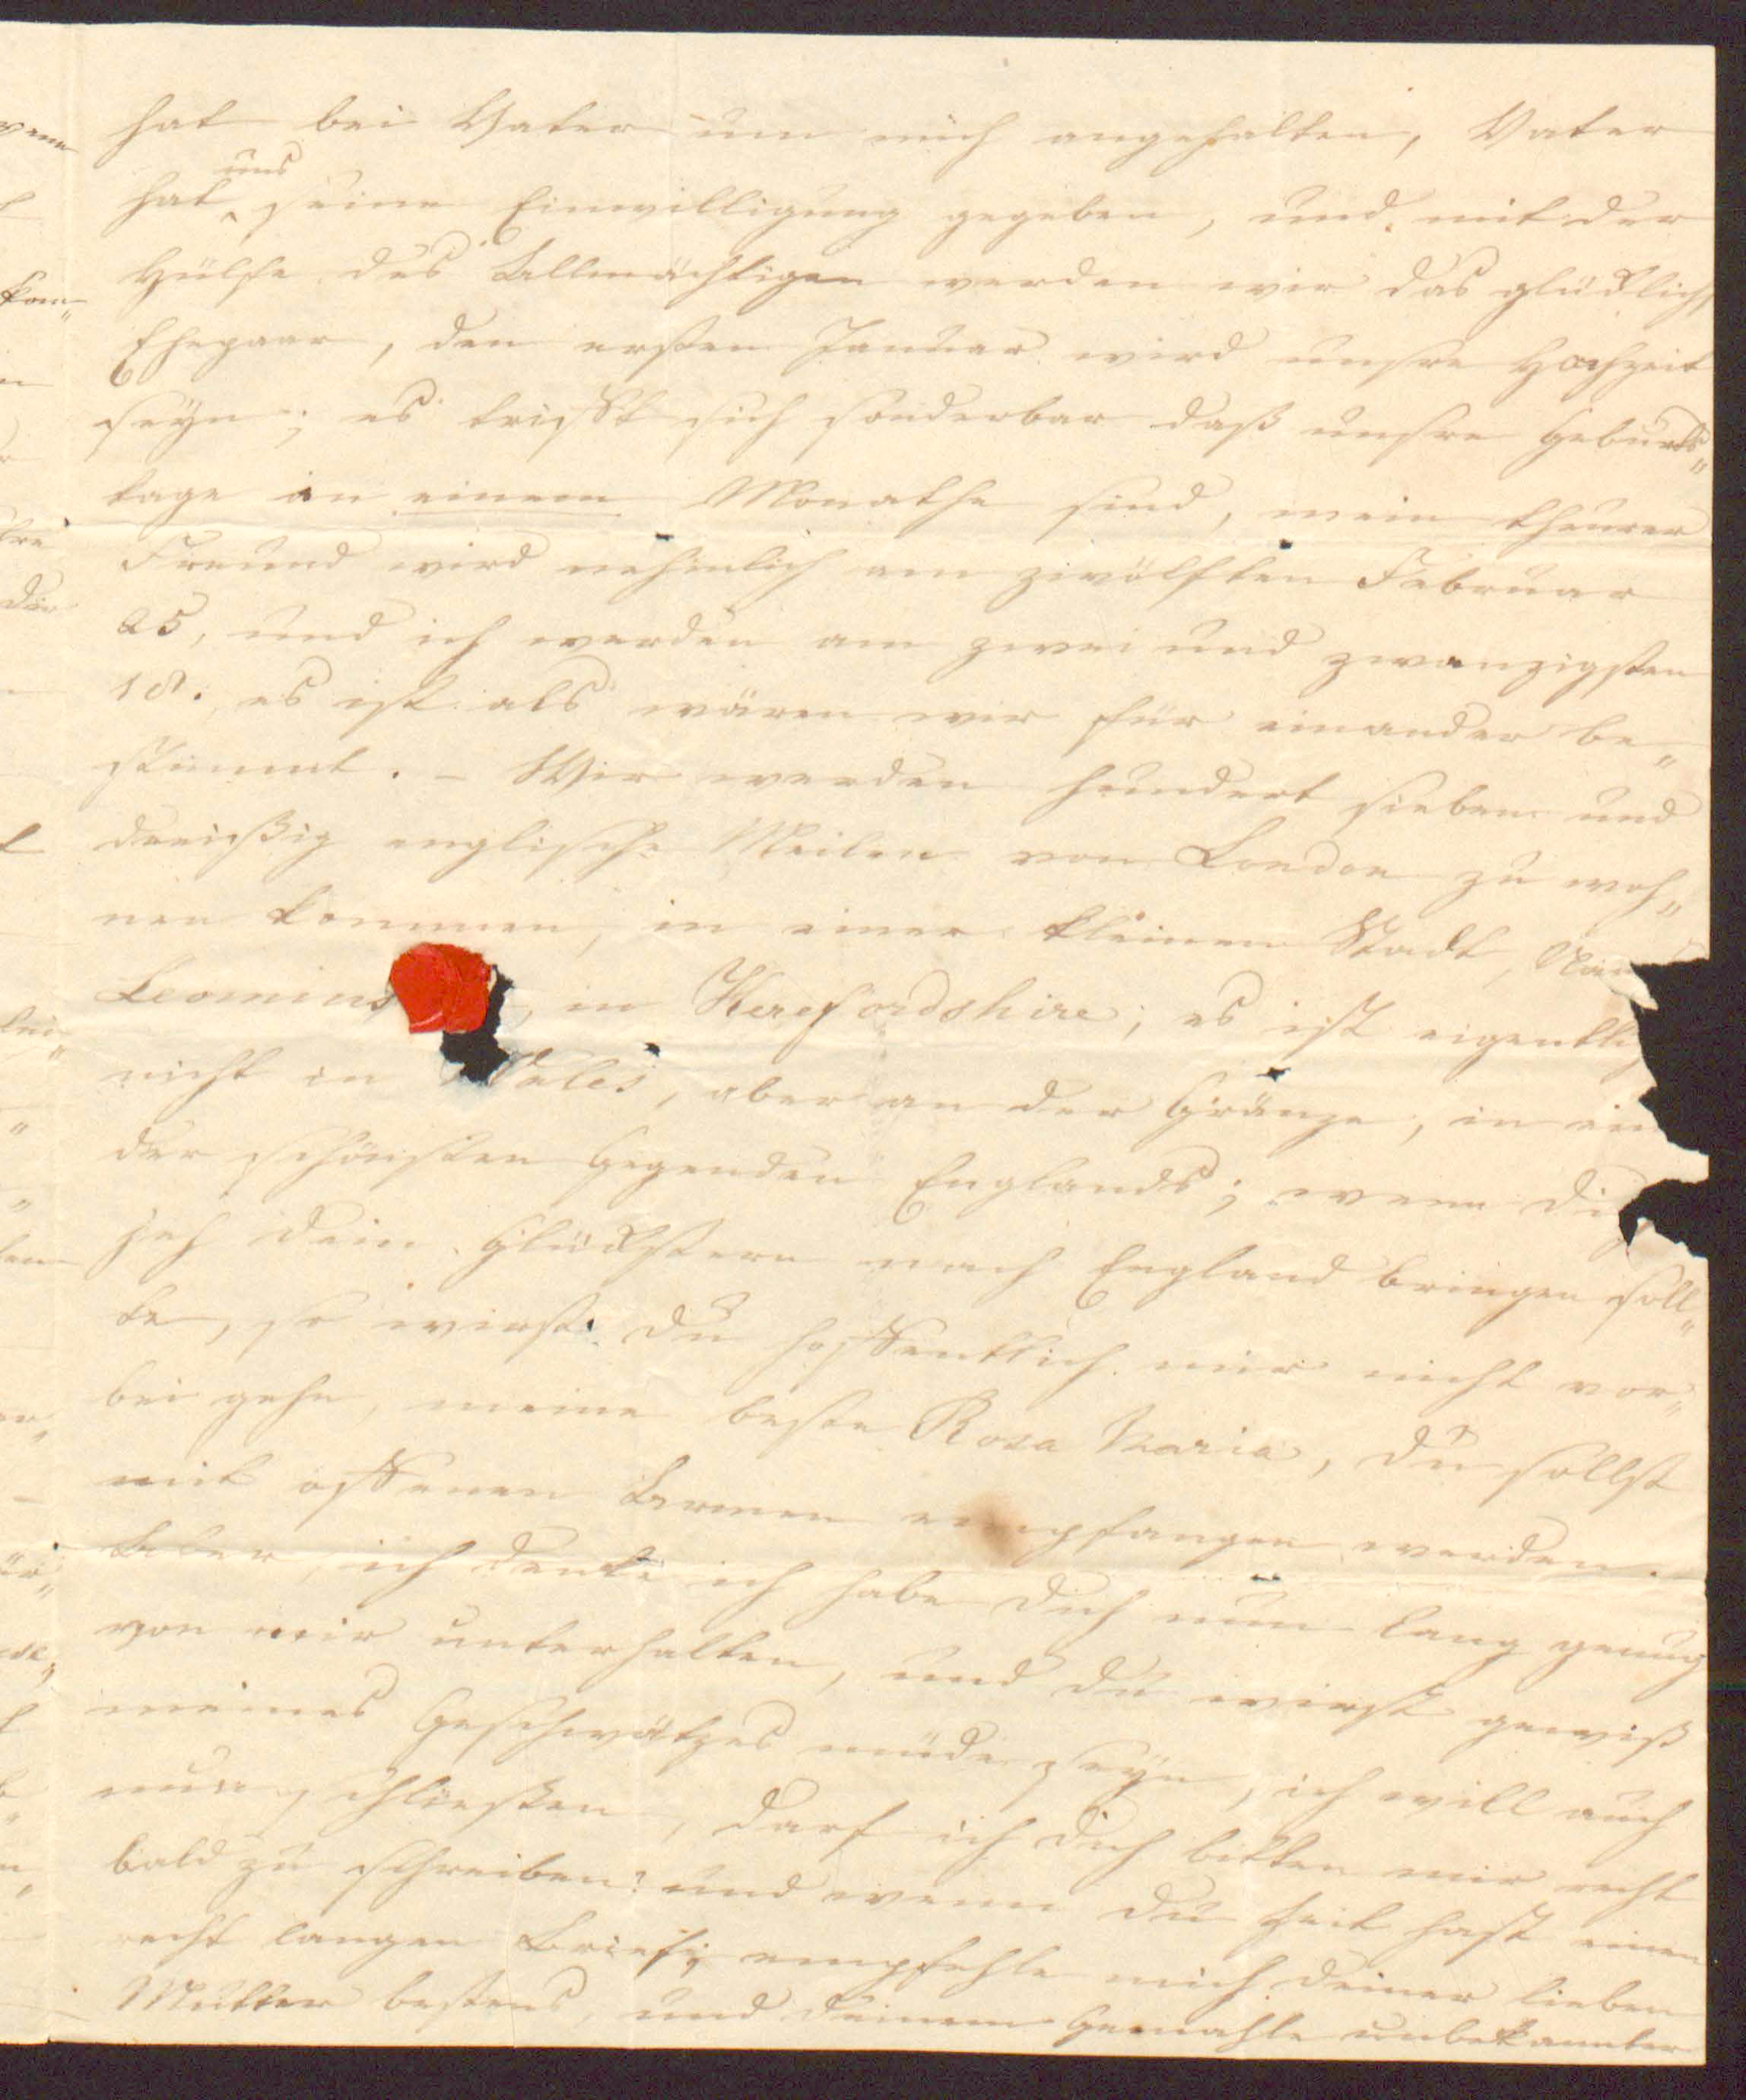 hat bei Vater um mich angehalten, Vater
hat uns seine Einwilligung gegeben, und mit der
Hülfe des Allmächtigen werden wir das glücklichs
Ehepaar, den ersten Januar wird unsre Hochzeit
seyn; es trifft sich sonderbar daß unsre Geburts„
tage in einem Monathe sind, mein theurer
Freund wird nehmlich am zwölften Februar
25, und ich werden am zwei und zwanzigsten
18., es ist als wären wir für einander be„
stimmt. – Wir werden hundert sieben und
dreißig englische Meilen von London zu woh„
nen kommen, in einer kleinen Stadt,
Leomins, in Herefordshire; es ist eigentli
nicht in Wales, aber an der Gränze, in ein
der schönsten Gegenden Englands; wenn di
jeh dein Glückstern nach England bringen soll„
te, so wirst du hoffentlich mir nicht vor„
bei gehn, meine beste Rosa Maria, du sollst
mit offenen Armen empfangen werden.
Aber, ich denke ich habe dich nun lang genug
von mir unterhalten, und du wirst gewiß
meines Geschwätzes müde seyn, ich will auch
nun schließen, darf ich dich bitten mir recht
bald zu schreiben? und wenn du Zeit hast einen
recht langen Brief; empfehle mich deiner lieben
Mutter bestens, und deinem Gemahle unbekannter